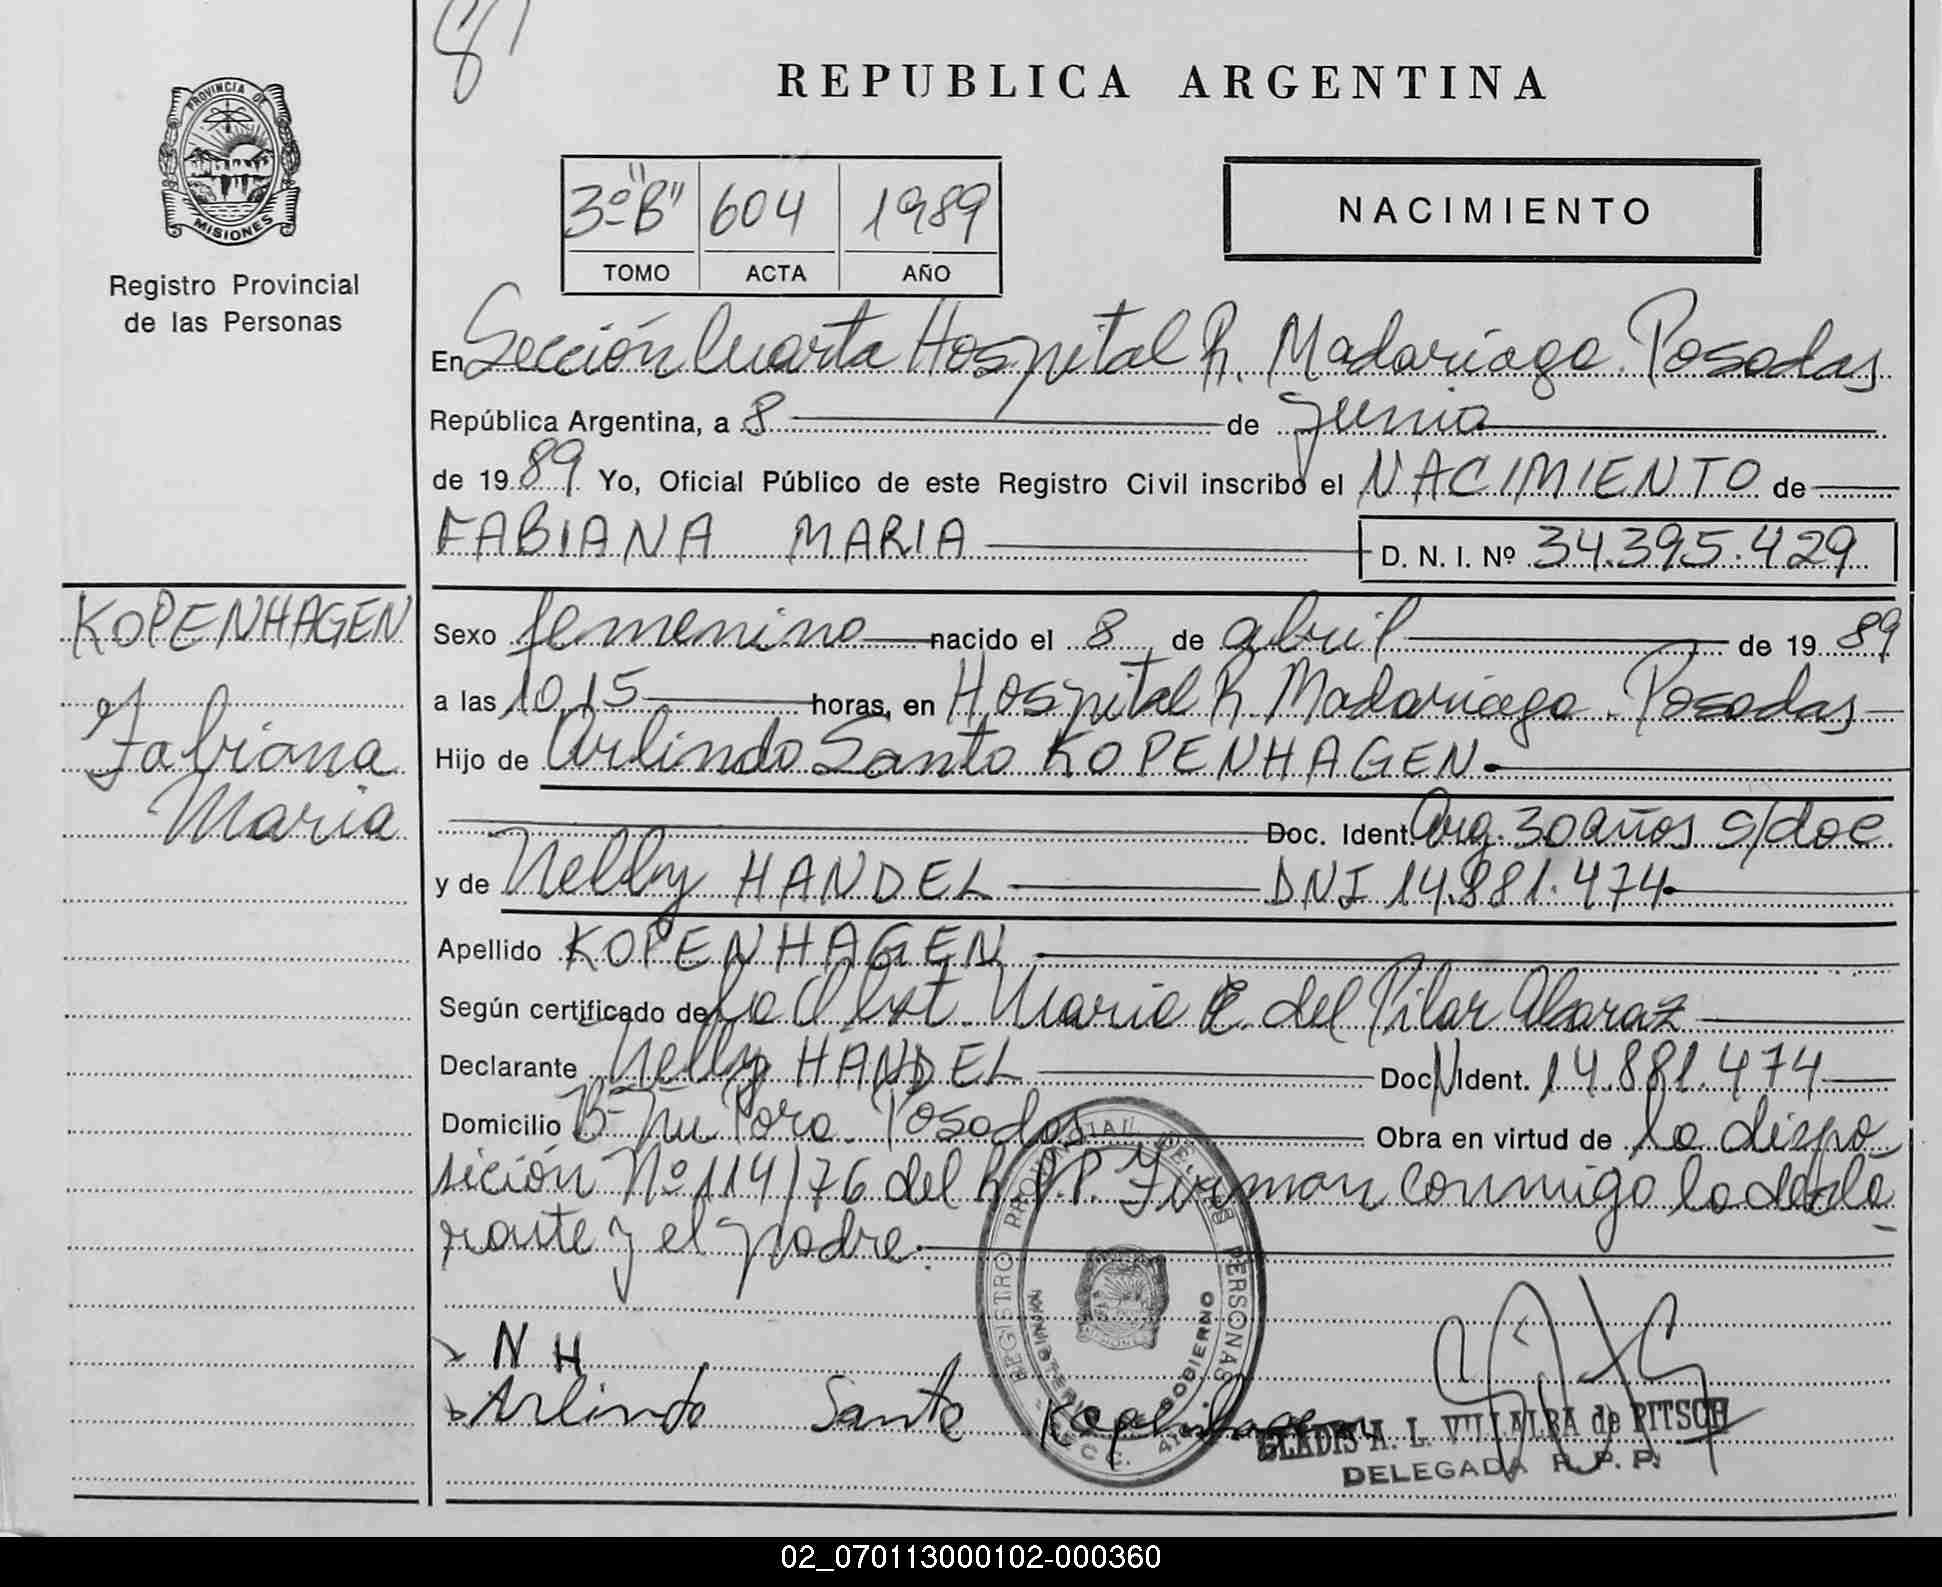 REPUBLICA ARGENTINA
PROVINCIA DE
MISIONES
Registro Provincial
de las Personas
3º "B" 604 1989
TOMO ACTA AÑO
NACIMIENTO
En Sección Cuarta Hospital R. Madariaga. Posadas
República Argentina, a 8 de Junio
de 1989 Yo, Oficial Público de este Registro Civil inscribo el NACIMIENTO de
FABIANA MARIA D. N. I. Nº 34.395.429
KOPENHAGEN
Fabiana
Maria
Sexo femenino nacido el 8 de abril de 1989
a las 10,15 horas, en Hospital R. Madariaga. Posadas
Hijo de Arlindo Santo KOPENHAGEN.
Doc. Ident. Arg. 30 años s/doc
y de Nelly HANDEL DNI 14.881.474
Apellido KOPENHAGEN
Según certificado de la Obst. Maria E. del Pilar Alcaraz
Declarante Nelly HANDEL Doc N Ident. 14.881.474
Domicilio Bº Ñu Pora. Posadas Obra en virtud de la dispo
sición Nº 114/76 del R.P.P. Firman conmigo la decla
rante y el padre.
N H
Arlindo Santo Kopenhagen
REGISTRO PROVINCIAL DE LAS PERSONAS
MINISTERIO DE GOBIERNO
GLADIS A. L. VILLALBA de PITSCH
DELEGADA R. P. P.
02_070113000102-000360